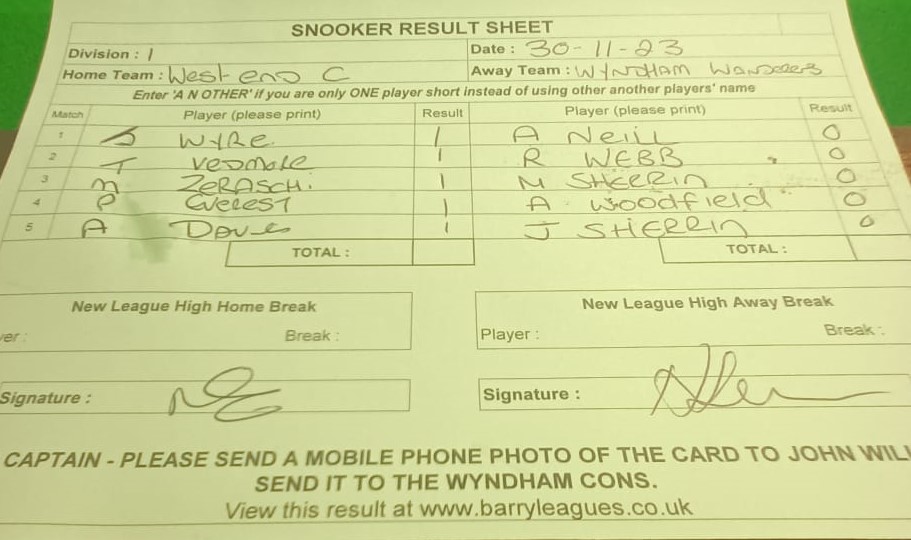 SNOOKER RESULT SHEET
Division : 1 Date : 30-11-23
Home Team : West end C Away Team : WYNDHAM Wanderers
Enter 'A N OTHER' if you are only ONE player short instead of using other another players' name
Match Player (please print) Result Player (please print) Result
1 S WYRE 1 A Neill 0
2 T 1 R WEBB 0
3 M ZERASCHI. 1 M SHERRIN 0
4 P Everest 1 A Woodfield 0
5 A Davies 1 J SHERRIN 0
TOTAL : TOTAL :
New League High Home Break New League High Away Break
Break : Player : Break :
Signature : Signature :
CAPTAIN - PLEASE SEND A MOBILE PHONE PHOTO OF THE CARD TO JOHN WILL
SEND IT TO THE WYNDHAM CONS.
View this result at www.barryleagues.co.uk